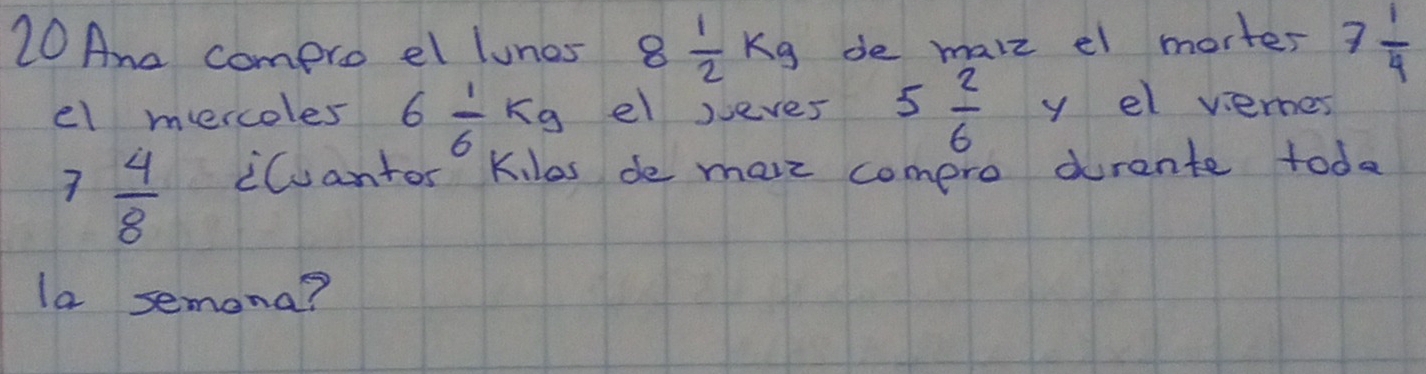 20 Ana compro el lunes 8 1/2 Kg de maiz el martes 7 1/4
el miercoles 6 1/6 Kg el jueves 5 2/6 y el viernes
7 4/8 ¿Cuantos Kilos de maiz compro durante toda
la semana?